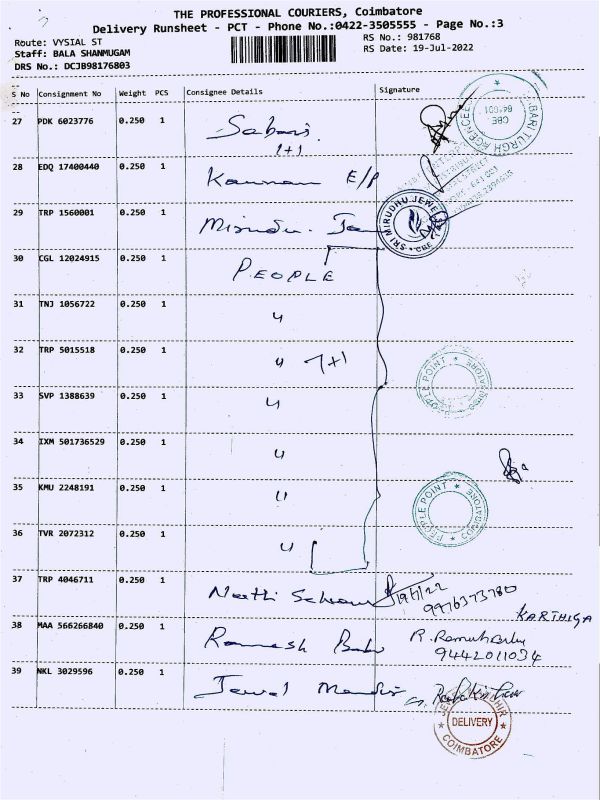 THE PROFESSIONAL COURIERS, Coimbatore
Delivery Runsheet - PCT - Phone No.:0422-3505555 - Page No.:3
Route: VYSIAL ST
RS No.: 981768
Staff: BALA SHANMUGAM
RS Date: 19-Jul-2022
DRS No.: DCJB98176803
S No Consignment No Weight PCS Consignee Details Signature
27 PDK 6023776 0.250 1 Sabari
1+1
28 EDQ 17400440 0.250 1 Kannan E/P
29 TRP 1560001 0.250 1 Mirudu.
SRI MIRUDHU JEWE
CBE
30 CGL 12024915 0.250 1 PEOPLE
31 TNJ 1056722 0.250 1 "
32 TRP 5015518 0.250 1 " 7+1
PEOPLE POINT ★ COIMBATORE ★
33 SVP 1388639 0.250 1 "
34 IXM 501736529 0.250 1 "
35 KMU 2248191 0.250 1 "
PEOPLE POINT ★ COIMBATORE ★
36 TVR 2072312 0.250 1 "
37 TRP 4046711 0.250 1 19/7/22
9976373780
KARTHIGA
38 MAA 566266840 0.250 1 Ramesh Babu R. Ramesh Babu
9442011034
39 NKL 3029596 0.250 1 Jewel
DELIVERY
COIMBATORE